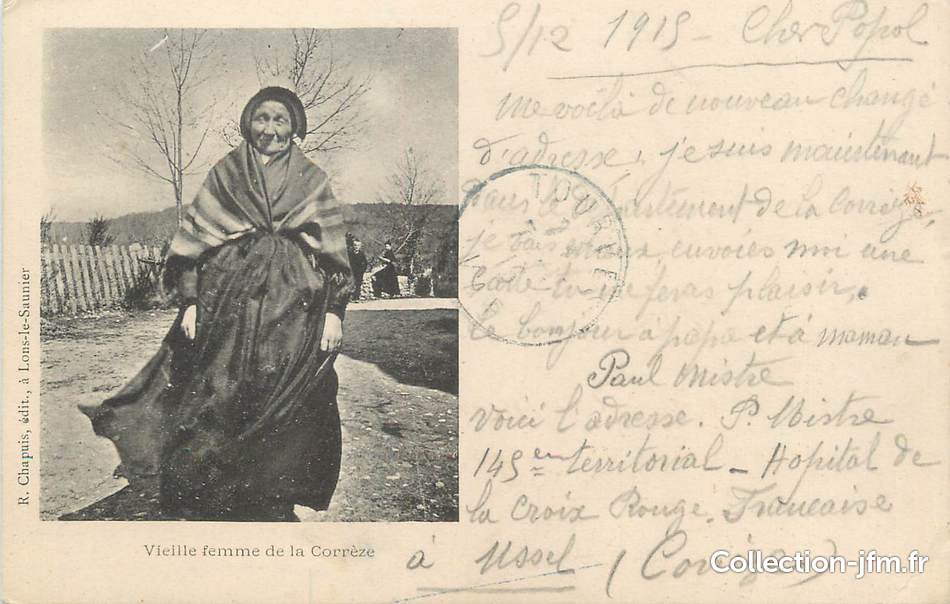 5/12 1915 - Cher Popol
me voilà de nouveau changé
d'adresse, je suis maintenant
dans le département de la Corrèze,
je vais envoies moi une
carte tu me feras plaisir,
le bonjour à papa et à maman
Paul Mistre
voici l'adresse. P. Mistre
145en territorial - Hopital de
la Croix Rouge. Francaise
à Ussel (Corrèze)
R. Chapuis, édit., à Lons-le-Saunier
Vieille femme de la Corrèze
Collection-jfm.fr